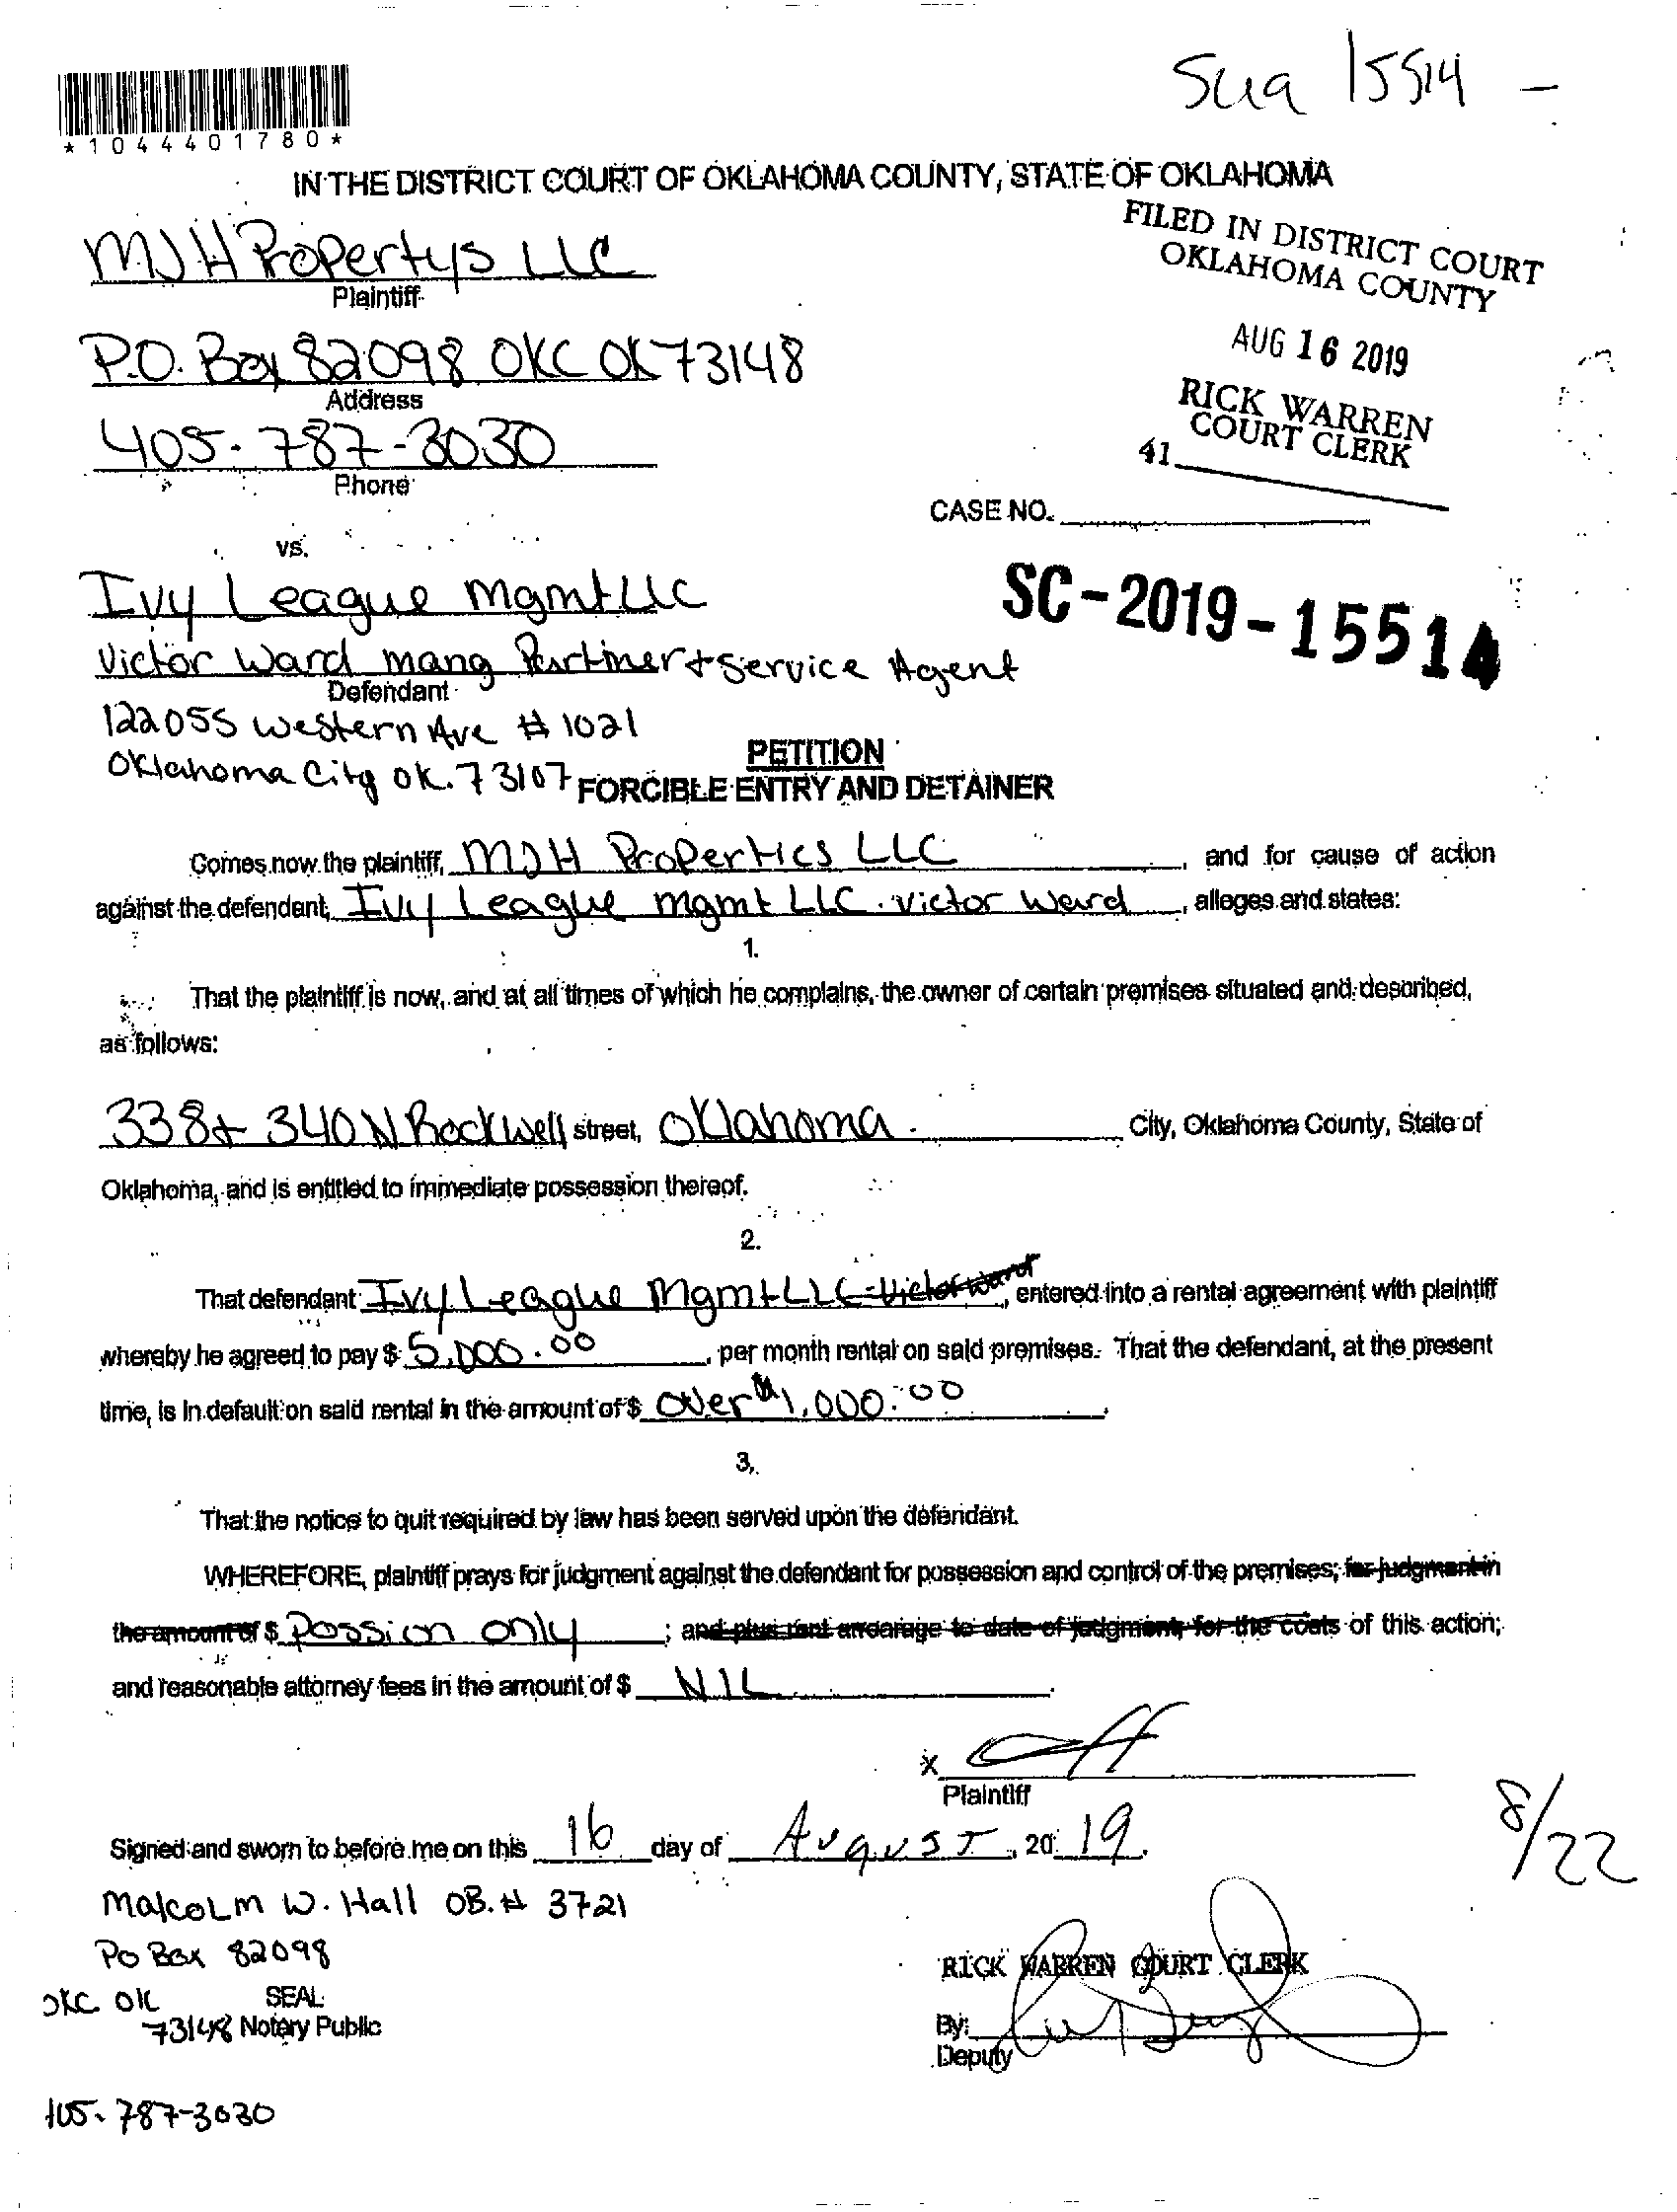 Sua 15514 -
*1044401780*
IN THE DISTRICT COURT OF OKLAHOMA COUNTY, STATE OF OKLAHOMA
MJH Propertys LLC
Plaintiff
FILED IN DISTRICT COURT
OKLAHOMA COUNTY
P.O. Box 82098 OKC OK 73148
Address
AUG 16 2019
RICK WARREN
COURT CLERK
41
405-787-3030
Phone
CASE NO.
vs.
SC-2019-15514
Ivy League Mgmt LLC
Victor Ward Mang Partiner + Service Agent
Defendant
12205S Western Ave # 1021
Oklahoma City OK. 73107
PETITION
FORCIBLE ENTRY AND DETAINER
Comes now the plaintiff, MJH Properties LLC, and for cause of action
against the defendant, Ivy League Mgmt LLC. Victor Ward, alleges and states:
1.
That the plaintiff is now, and at all times of which he complains, the owner of certain premises situated and described,
as follows:
338 + 340 N Rockwell street, Oklahoma City, Oklahoma County, State of
Oklahoma, and is entitled to immediate possession thereof.
2.
That defendant Ivy League Mgmt LLC - Victor Ward, entered into a rental agreement with plaintiff
whereby he agreed to pay $ 5,000.00, per month rental on said premises. That the defendant, at the present
time, is in default on said rental in the amount of $ Over $1,000.00.
3.
That the notice to quit required by law has been served upon the defendant.
WHEREFORE, plaintiff prays for judgment against the defendant for possession and control of the premises; for judgment in
the amount of $ Possion only; and plus rent arrearage to date of judgment; for the costs of this action;
and reasonable attorney fees in the amount of $ NIL.
X
Plaintiff
Signed and sworn to before me on this 16 day of August, 20 19.
8/22
Malcolm W. Hall OB.# 3721
PO Box 82098
OKC OK
73148
SEAL
Notary Public
RICK WARREN COURT CLERK
By:
Deputy
405-787-3030